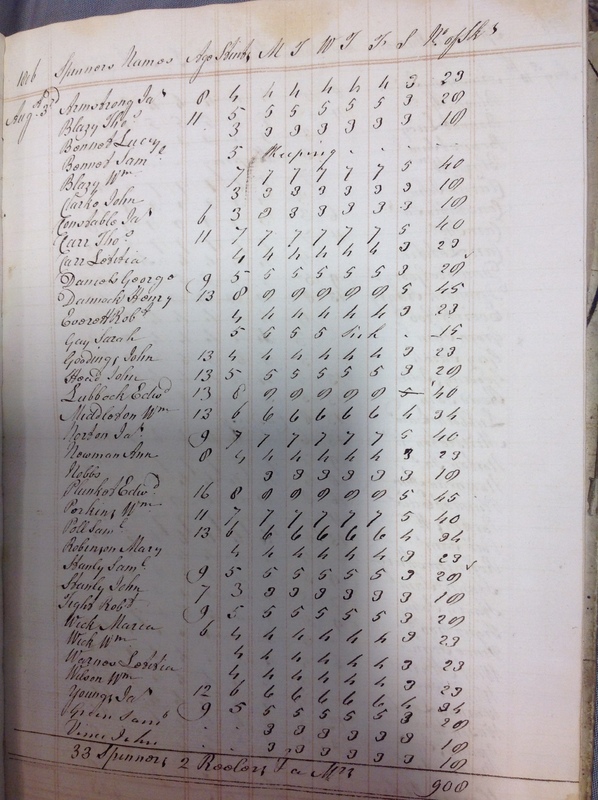 1816 Spinners Names Age Stint M T W T F S No of Sks
Augt 3d Armstrong Jas 8 4 4 4 4 4 4 3 23
Blazy Thos 11 5 5 5 5 5 5 3 28
Bennet Lucy 3 3 3 3 3 3 3 18
Bennet Sam 5 Keeping
Blazy Wm 7 7 7 7 7 7 5 40
Clarke John 3 3 3 3 3 3 3 18
Constable Jas 6 3 3 3 3 3 3 3 18
Carr Thos 11 7 7 7 7 7 7 5 40
Carr Letitia 4 4 4 4 4 4 3 23
Daniels George 9 5 5 5 5 5 5 3 28
Dannock Henry 13 8 8 8 8 8 8 5 45
Everett Robt 4 4 4 4 4 4 3 23
Gay Sarah 5 5 5 5 Sick 15
Gooding John 13 4 4 4 4 4 4 3 23
Hood John 13 5 5 5 5 5 5 3 28
Lubbock Edwd 13 8 8 8 8 8 8 5 40
Middleton Wm 13 6 6 6 6 6 6 4 34
Norton Jas 9 7 7 7 7 7 7 5 40
Newman Ann 8 4 4 4 4 4 4 3 23
Nobbs 3 3 3 3 3 3 18
Plunket Edwd 16 8 8 8 8 8 8 5 45
Perkins Wm 11 7 7 7 7 7 7 5 40
Poll Saml 13 6 6 6 6 6 6 4 34
Robinson Mary 4 4 4 4 4 4 3 23
Stanly Saml 9 5 5 5 5 5 5 3 28
Stanly John 7 3 3 3 3 3 3 3 18
Tight Robt 9 5 5 5 5 5 5 3 28
Wick Maria 6 4 4 4 4 4 4 3 23
Wick Wm
Warnes Letitia 4 4 4 4 4 4 3 23
Wilson Wm 4 4 4 4 4 4 3 23
Youngs Jas 12 6 6 6 6 6 6 4 34
Green Saml 9 5 5 5 5 5 5 3 28
Vince John 3 3 3 3 3 3 18
3 3 3 3 3 3 18
33 Spinners 2 Reelers & a Mrs 908